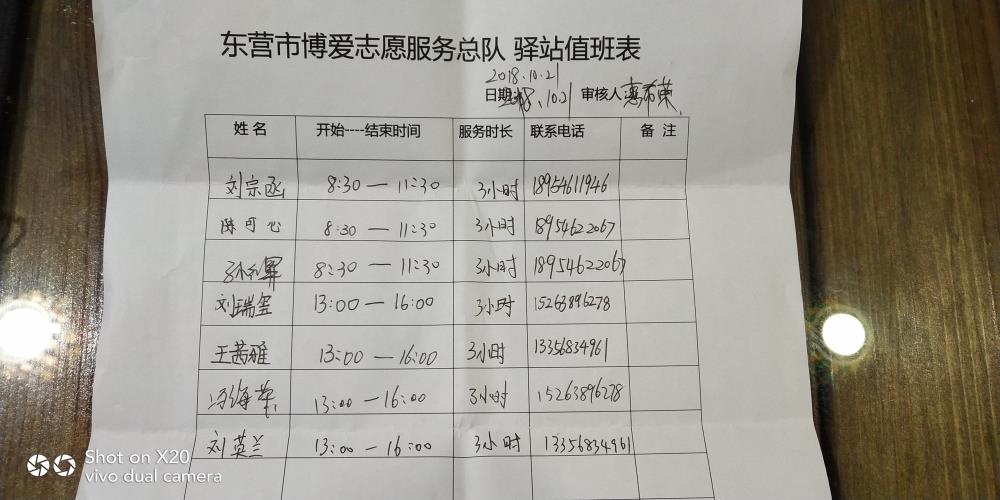 东营市博爱志愿服务总队 驿站值班表
2018.10.21
日期 2018.10.21 审核人
姓名 开始----结束时间 服务时长 联系电话 备注
刘宗函 8:30 — 11:30 3小时 18954611946
陈可心 8:30 — 11:30 3小时 18954622067
8:30 — 11:30 3小时 18954622067
刘瑞玺 13:00 — 16:00 3小时 15263896278
王茜雅 13:00 — 16:00 3小时 13356834961
冯海荣 13:00 — 16:00 3小时 15263896278
刘英兰 13:00 — 16:00 3小时 13356834961
Shot on X20
vivo dual camera